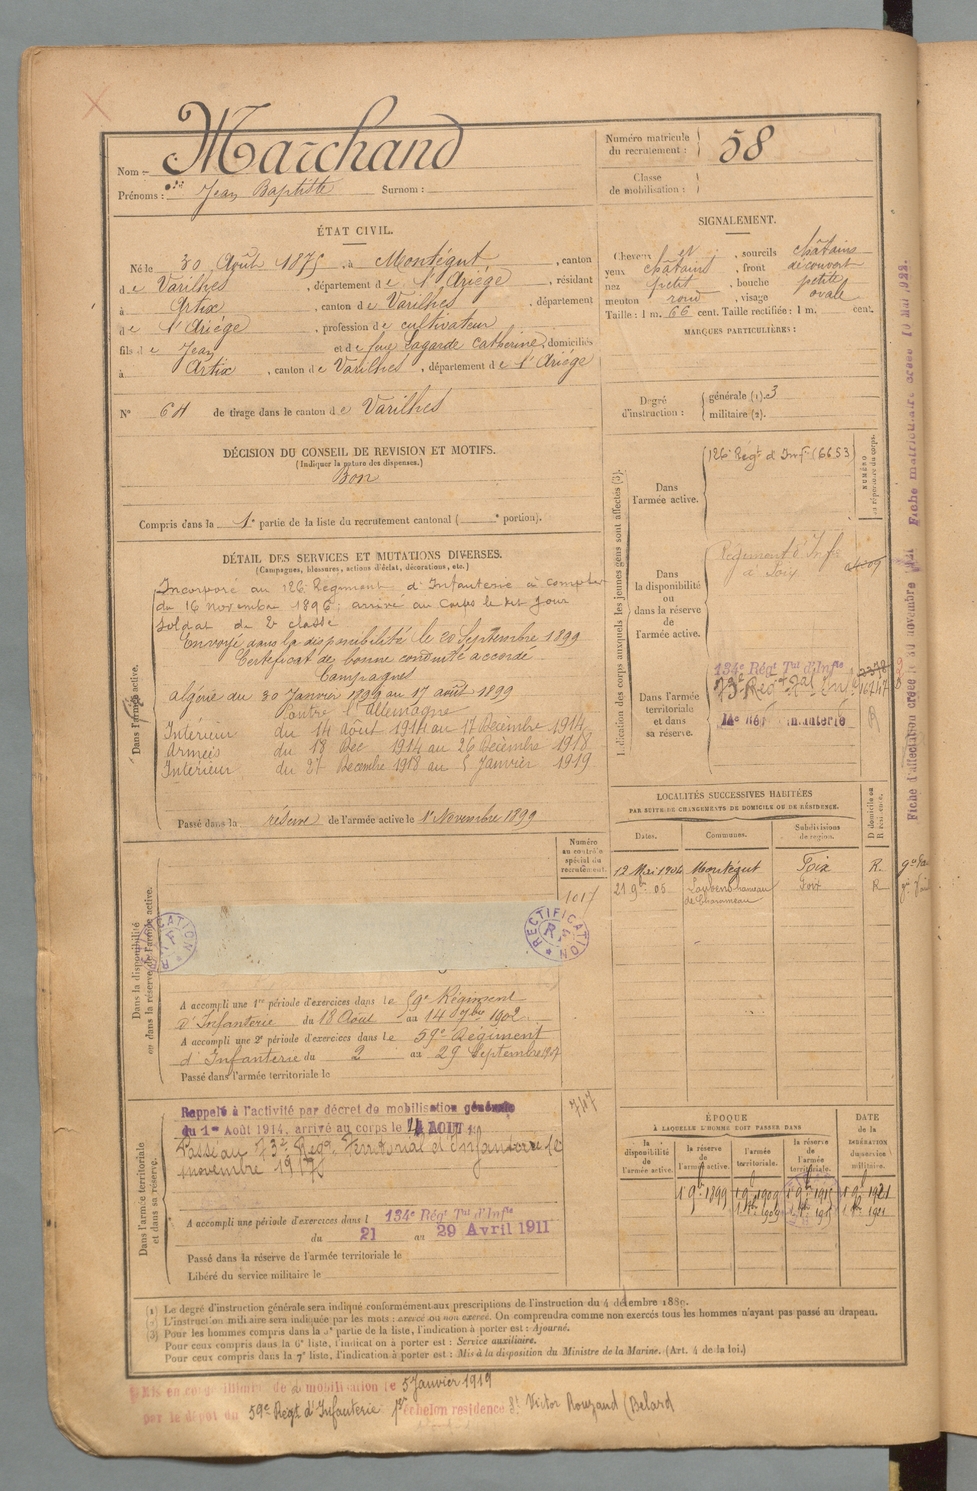 Nom :- Marchand
Prénoms : Jean Baptiste Surnom :
Numéro matricule du recrutement : 58
Classe de mobilisation :
ÉTAT CIVIL.
Né le 30 Août 1875, à Montégut, canton
de Varilhes, département de l'Ariège, résidant
à Artix, canton de Varilhes, département
de l'Ariège, profession de cultivateur
fils de Jean et de feue Lagarde Catherine, domiciliés
à Artix, canton de Varilhes, département de l'Ariège
N° de tirage dans le canton de Varilhes
SIGNALEMENT.
Cheveux et sourcils châtains
yeux châtains, front découvert
nez petit, bouche petite
menton rond, visage ovale
Taille : 1 m. 66 cent. Taille rectifiée : 1 m. cent.
MARQUES PARTICULIÈRES :
Degré d'instruction : générale (1). 3
militaire (2).
DÉCISION DU CONSEIL DE REVISION ET MOTIFS.
(Indiquer la nature des dispenses.)
Bon
Compris dans la 1e partie de la liste du recrutement cantonal ( e portion).
DÉTAIL DES SERVICES ET MUTATIONS DIVERSES.
(Campagnes, blessures, actions d'éclat, décorations, etc.)
Dans l'armée active.
Incorporé au 126e Régiment d'Infanterie à compter
du 16 novembre 1896; arrivé au Corps le dit jour
Soldat de 2e classe
Envoyé dans la disponibilité le 20 Septembre 1899
Certificat de bonne conduite accordé
Campagnes
Algérie du 30 Janvier 1899 au 17 août 1899
Contre l'Allemagne
Intérieur du 14 août 1914 au 17 Décembre 1914
Armées du 18 Dec 1914 au 26 Décembre 1918
Intérieur du 27 Decembre 1918 au 5 Janvier 1919
Passé dans la réserve de l'armée active le 1er Novembre 1899
Indication des corps auxquels les jeunes gens sont affectés (3).
NUMÉRO au répertoire du corps.
Dans l'armée active.
126e Régt d'Infie (6653)
Dans la disponibilité ou dans la réserve de l'armée active.
Régiment d'Infie de Foix
Dans l'armée territoriale et dans sa réserve.
134e Régt Tal d'Infie
LOCALITÉS SUCCESSIVES HABITÉES
PAR SUITE DE CHANGEMENTS DE DOMICILE OU DE RÉSIDENCE.
Dates. Communes. Subdivisions de région. D domicile ou R résidence.
12 Mai 1904 Montégut Foix R.
21 9bre 05 Foix R
Dans la disponibilité ou dans la réserve de l'armée active.
Numéro au contrôle spécial du recrutement.
1017
RECTIFICATION RF
RECTIFICATION RF
A accompli une 1re période d'exercices dans le 59e Régiment
d'Infanterie du 18 Août au 14 7bre 1902
A accompli une 2e période d'exercices dans le 59e Régiment
d'Infanterie du 2 au 29 Septembre
Passé dans l'armée territoriale le
Dans l'armée territoriale et dans sa réserve.
Rappelé à l'activité par décret de mobilisation générale
du 1er Août 1914, arrivé au corps le 14 AOUT 14
Passé au 73e Régt Territorial d'Infanterie le
novembre 1917
A accompli une période d'exercices dans l 134e Régt Tal d'Infie
du 21 au 29 Avril 1911
Passé dans la réserve de l'armée territoriale le
Libéré du service militaire le
ÉPOQUE
À LAQUELLE L'HOMME DOIT PASSER DANS
la disponibilité de l'armée active. la réserve de l'armée active. l'armée territoriale. la réserve de l'armée territoriale.
DATE de la LIBÉRATION du service militaire.
1 9b 1899 1 9b 1909 1 9b 1915 1 9b 1921
(1) Le degré d'instruction générale sera indiqué conformément aux prescriptions de l'instruction du 4 décembre 1889.
(2) L'instruction militaire sera indiquée par les mots : exercé ou non exercé. On comprendra comme non exercés tous les hommes n'ayant pas passé au drapeau.
(3) Pour les hommes compris dans la 5e partie de la liste, l'indication à porter est : Ajourné.
Pour ceux compris dans la 6e liste, l'indication à porter est : Service auxiliaire.
Pour ceux compris dans la 7e liste, l'indication à porter est : Mis à la disposition du Ministre de la Marine. (Art. 4 de la loi.)
Mis en congé illimité de démobilisation le 5 Janvier 1919
par le dépôt du 59e Régt d'Infanterie 1er échelon residence St Victor Rouzaud
Fiche d'affectation créée le 30 novembre Fiche matriculaire créée 10 Mai 1922.